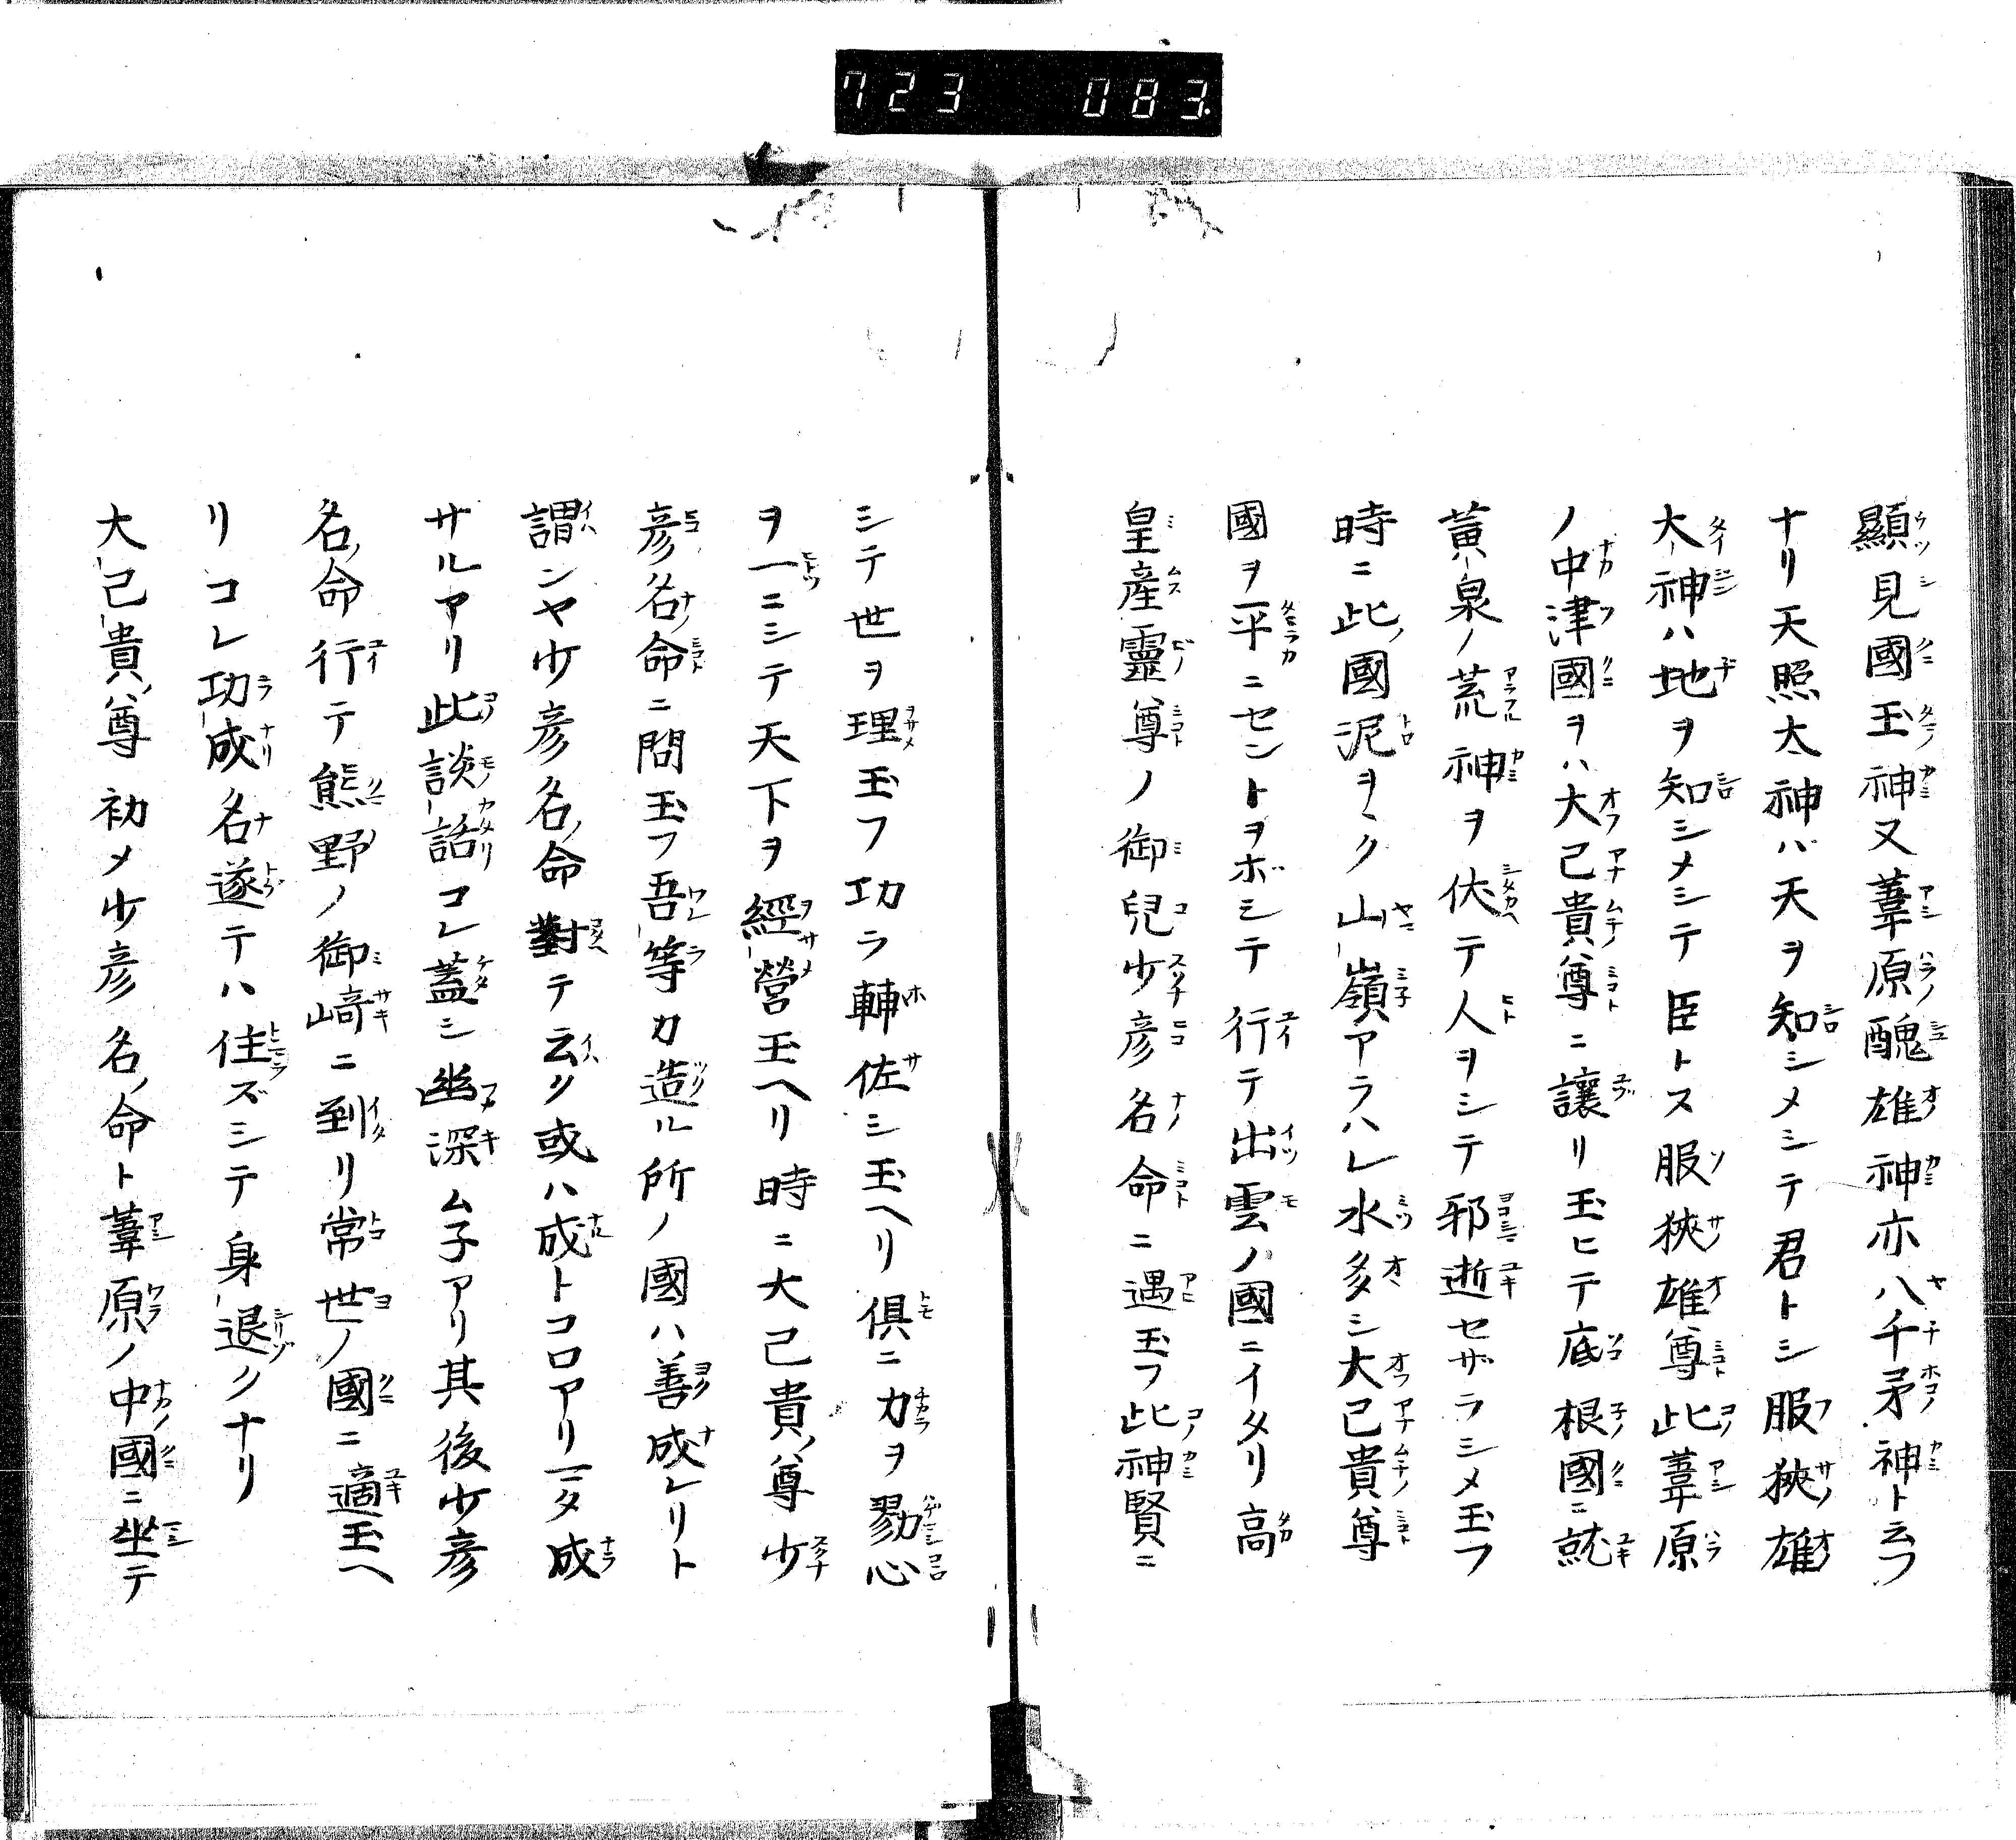 723 083
顯見國玉神又葦原醜雄神亦八千矛神ト云フ
ナリ天照太神ハ天ヲ知シメシテ君トシ服狹雄
大神ハ地ヲ知シメシテ臣トス服狹雄尊此葦原
ノ中津國ヲハ大己貴尊ニ讓リ玉ヒテ底根國ニ就
黄泉ノ荒神ヲ伏テ人ヲシテ邪逝セザラシメ玉フ
時ニ此國泥ヲヽク山嶺アラハレ水多シ大己貴尊
國ヲ平ニセントヲボシテ行テ出雲ノ國ニイタリ高
皇産靈尊ノ御兒少彦名命ニ遇玉フ此神賢ニ
シテ世ヲ理玉フ功ラ輔佐シ玉ヘリ俱ニ力ヲ勠心
ヲ一ニシテ天下ヲ經營玉ヘリ時ニ大己貴尊少
彦名命ニ問玉フ吾等カ造ル所ノ國ハ善成レリト
謂ンヤ少彦名命對テ云ク或ハ成トコロアリ一タ成
サルアリ此談話コレ蓋シ幽深ム子アリ其後少彦
名命行テ熊野ノ御﨑ニ到リ常世ノ國ニ適玉ヘ
リコレ功成名遂テハ住ズシテ身退クナリ
大己貴尊初メ少彦名命ト葦原ノ中國ニ坐テ